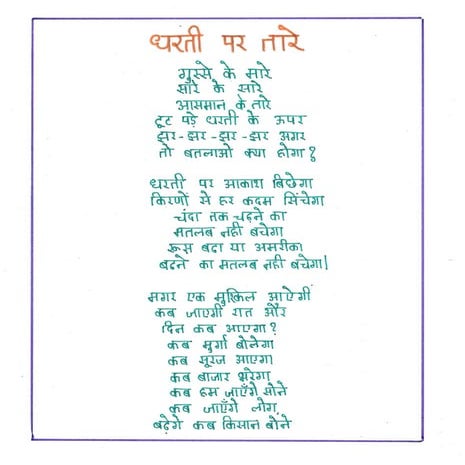 धरती पर तारे
गुस्से के मारे
सारे के सारे
आसमान के तारे
टूट पड़े धरती के ऊपर
झर-झर-झर-झर अगर
तो बतलाओ क्या होगा?
धरती पर आकाश बिछेगा
किरणों से हर कदम सिंचेगा
चंदा तक चढ़ने का
मतलब नहीं बचेगा
रूस बढ़ा या अमरीका
बढ़ने का मतलब नहीं बचेगा!
मगर एक मुश्किल आऐगी
कब जाएगी रात और
दिन कब आएगा?
कब मुर्गा बोलेगा
कब सूरज आएगा
कब बाजार भरेगा
कब हम जाएँगे सोने
कब जाएँगे लोग,
बढ़ेगे कब किसान बोने